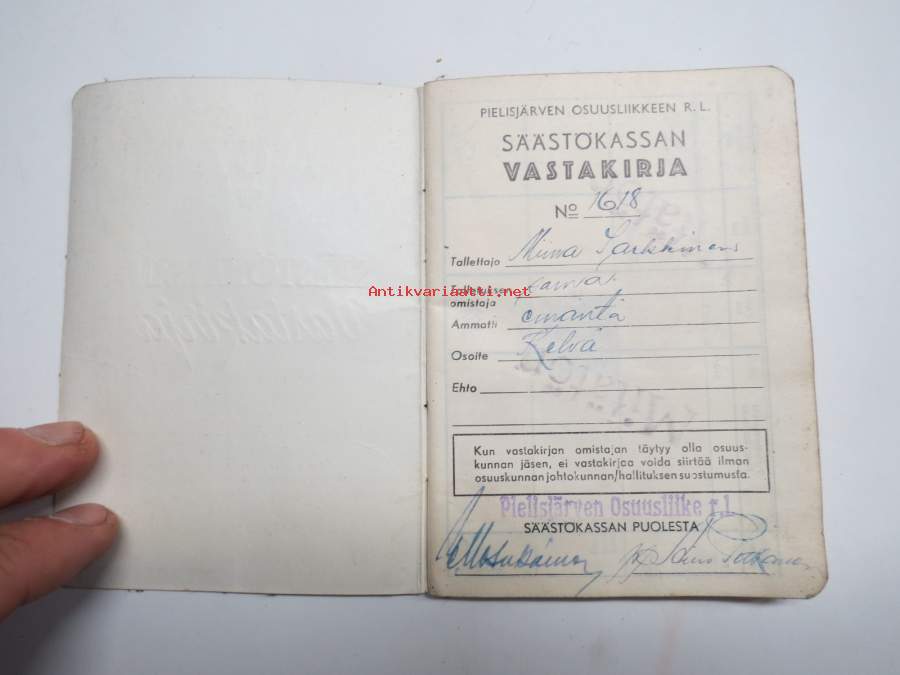 PIELISJÄRVEN OSUUSLIIKKEEN R. L.
SÄÄSTÖKASSAN
VASTAKIRJA
No 1618
Tallettaja Miina Sarkkinen
Antikvariaatti.net
Talletuksen omistaja sama
Ammatti emäntä
Osoite Kelvä
Ehto
Kun vastakirjan omistajan täytyy olla osuus-
kunnan jäsen, ei vastakirjaa voida siirtää ilman
osuuskunnan johtokunnan/hallituksen suostumusta.
Pielisjärven Osuusliike r.l.
SÄÄSTÖKASSAN PUOLESTA